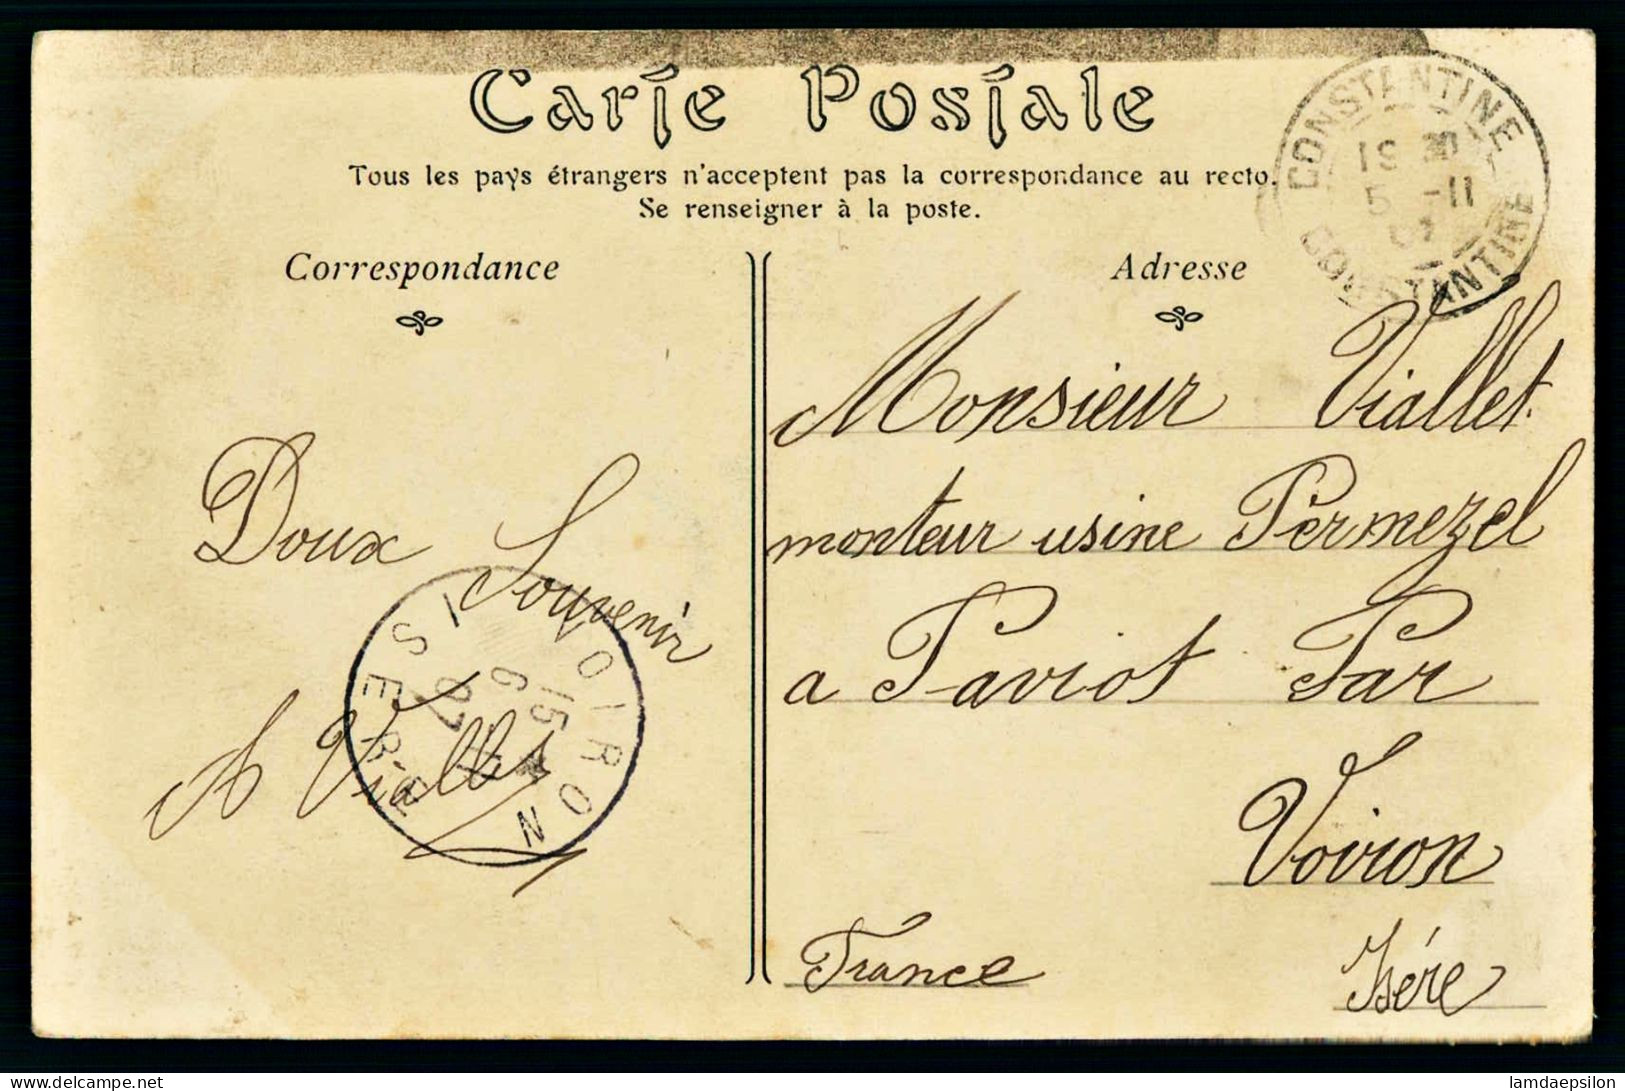 Carte Postale
Tous les pays étrangers n'acceptent pas la correspondance au recto.
Se renseigner à la poste.
CONSTANTINE
19 30
5 -11
07
CONSTANTINE
Correspondance
Adresse
Doux Souvenir
A Viallet
VOIRON
15
6
07
ISERE
Monsieur Viallet
monteur usine Permezel
a Paviot Par
Voiron
France Isére
delcampe.net
lamdaepsilon